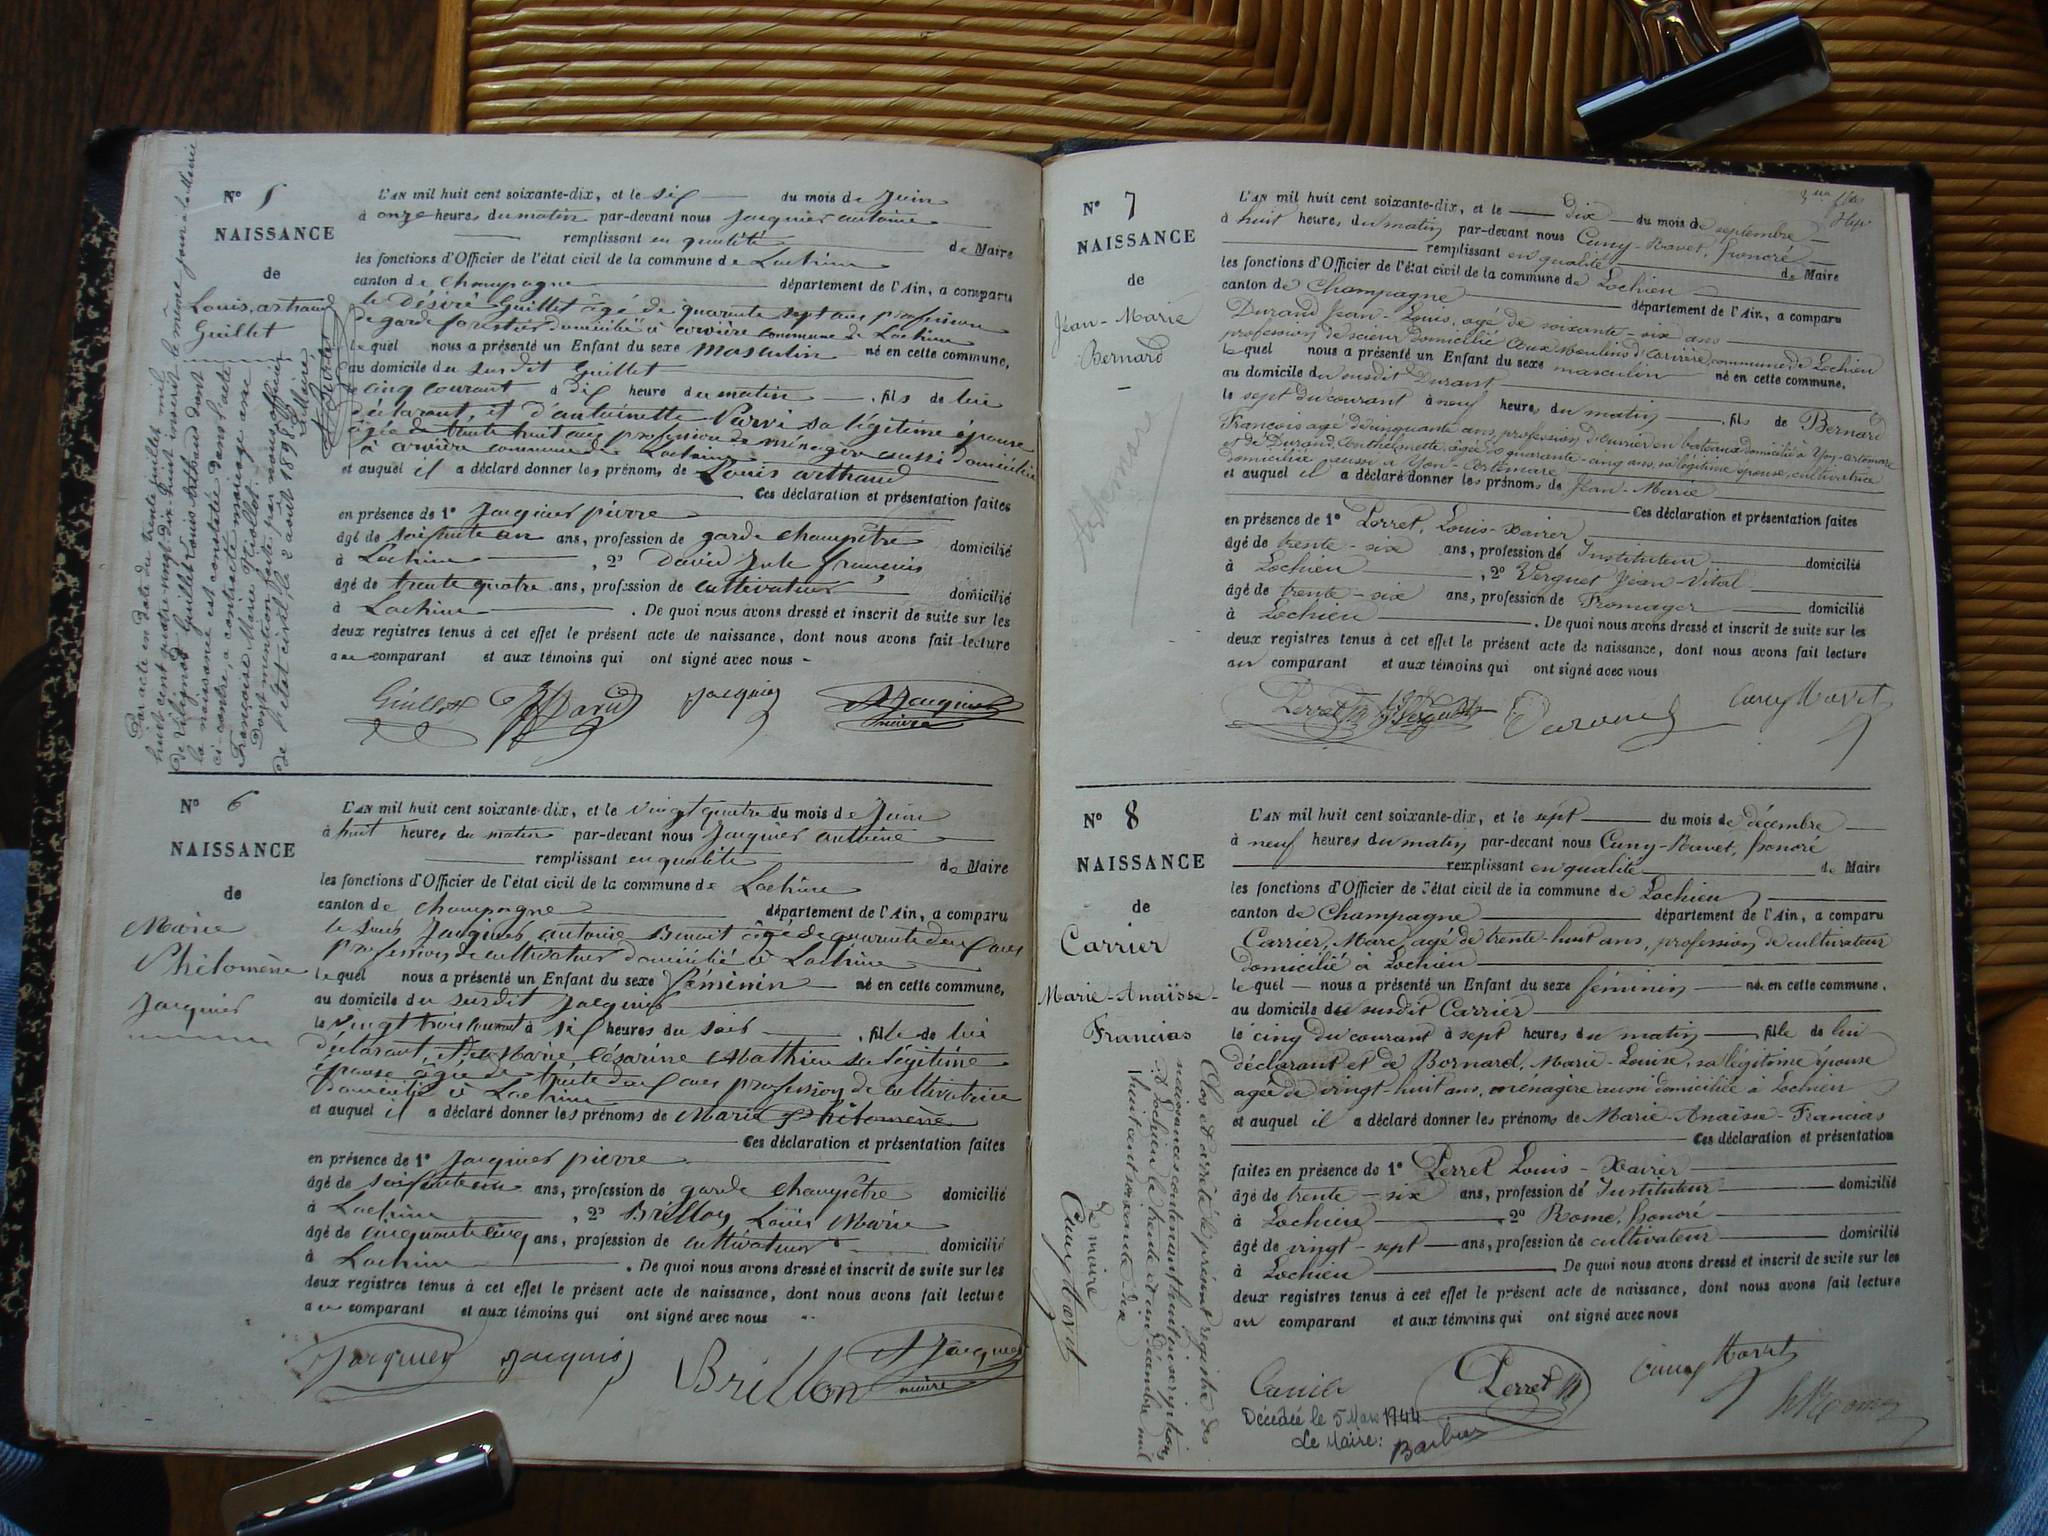 N° 5
NAISSANCE
de
Louis, arthaud
Guillet
L'AN mil huit cent soixante-dix, et le six du mois de Juin
à onze heures du matin par-devant nous Jacquier antoine
remplissant en qualité de Maire
les fonctions d'Officier de l'état civil de la commune de Lochieu
canton de champagne département de l'Ain, a comparu
le Désiré Guillet âgé de quarante sept ans profession
de garde forestier domicilié à arvière commune de Lochieu
lequel nous a présenté un Enfant du sexe masculin né en cette commune,
au domicile du susdit Guillet
le cinq courant à dix heure du matin fils de lui
déclarant, et d'antoinette sa légitime épouse
âgée de trente huit ans profession de ménagère aussi domiciliée
à arvière commune de Lochieu
et auquel il a déclaré donner les prénoms de Louis arthaud
Ces déclaration et présentation faites
en présence de 1° Jacquier pierre
âgé de soixante un ans, profession de garde champêtre domicilié
à Lochieu , 2° David Jule francois
âgé de trente quatre ans, profession de cultivateur domicilié
à Lochieu . De quoi nous avons dressé et inscrit de suite sur les
deux registres tenus à cet effet le présent acte de naissance, dont nous avons fait lecture
au comparant et aux témoins qui ont signé avec nous -
Guillet David Jacquier Jacquier
maire
Par acte en date du trente juillet mil
huit cent quatre-vingt-dix-huit inscrit le même jour à la Mairie
de Guillet Louis Arthaud dont
la naissance est constatée dans l'acte
ci-contre, a contracté mariage avec
Françoise Marie
Dont mention faite par nous officier
de l'état civil, le 2 août 1898
Le Maire
N° 6
NAISSANCE
de
Marie
Philomène
Jacquier
L'AN mil huit cent soixante-dix, et le vingt quatre du mois de Juin
à huit heures du matin par-devant nous Jacquier antoine
remplissant en qualité de Maire
les fonctions d'Officier de l'état civil de la commune de Lochieu
canton de champagne département de l'Ain, a comparu
le Jacquier antoine Benoit âgé de quarante deux ans
profession de cultivateur domicilié à Lochieu
lequel nous a présenté un Enfant du sexe féminin né en cette commune,
au domicile du susdit Jacquier
le vingt trois courant à six heures du soir fille de lui
déclarant, et de Marie Césarine Mathieu sa légitime
épouse âgée de trente deux ans profession de cultivatrice
domiciliée à Lochieu
et auquel il a déclaré donner les prénoms de Marie philomène
Ces déclaration et présentation faites
en présence de 1° Jacquier pierre
âgé de soixante un ans, profession de garde champêtre domicilié
à Lochieu , 2° Brillon Louis Marie
âgé de cinquante cinq ans, profession de cultivateur domicilié
à Lochieu . De quoi nous avons dressé et inscrit de suite sur les
deux registres tenus à cet effet le présent acte de naissance, dont nous avons fait lecture
au comparant et aux témoins qui ont signé avec nous
Jacquier Jacquier Brillon Jacquier
maire
N° 7
NAISSANCE
de
Jean-Marie
Bernard
Artemare
L'AN mil huit cent soixante-dix, et le Dix du mois de septembre
à huit heures du matin par-devant nous Cuny-Ravet, honoré
remplissant en qualité de Maire
les fonctions d'Officier de l'état civil de la commune de Lochieu
canton de Champagne département de l'Ain, a comparu
Durand Jean-Louis, agé de soixante-six ans
profession de scieur domicilié aux Moulins d'Arvière, commune de Lochieu
lequel nous a présenté un Enfant du sexe masculin né en cette commune,
au domicile du susdit Durant
le sept du courant à neuf heures du matin fils de Bernard
François agé de cinquante ans, profession d'ouvrier en bateaux domicilié à Yon-artemare
et de Durand, Anthelmette, âgée de quarante-cinq ans, sa légitime épouse, cultivatrice
domiciliée aussi à Yon-Artemare
et auquel il a déclaré donner les prénoms de Jean-Marie
Ces déclaration et présentation faites
en présence de 1° Perret, Louis-Xavier
âgé de trente-six ans, profession de Instituteur domicilié
à Lochieu , 2° Verguet Jean-Vital
âgé de trente-six ans, profession de Fromager domicilié
à Lochieu . De quoi nous avons dressé et inscrit de suite sur les
deux registres tenus à cet effet le présent acte de naissance, dont nous avons fait lecture
au comparant et aux témoins qui ont signé avec nous
Perret Verguet Durand Cuny Ravet
N° 8
NAISSANCE
de
Carrier
Marie-Anaïsse-
Francias
L'AN mil huit cent soixante-dix, et le sept du mois de décembre
à neuf heures du matin par-devant nous Cuny-Ravet, honoré
remplissant en qualité de Maire
les fonctions d'Officier de l'état civil de la commune de Lochieu
canton de Champagne département de l'Ain, a comparu
Carrier, Marc, agé de trente-huit ans, profession de cultivateur
domicilié à Lochieu
lequel nous a présenté un Enfant du sexe féminin né en cette commune,
au domicile du susdit Carrier
le cinq du courant à sept heures du matin fille de lui
déclarant et de Bornard, Marie-Louise, sa légitime épouse
agée de vingt-huit ans, ménagère aussi domiciliée à Lochieu
et auquel il a déclaré donner les prénoms de Marie-Anaïsse-Francias
Ces déclaration et présentation
faites en présence de 1° Perret Louis-Xavier
âgé de trente-six ans, profession de Instituteur domicilié
à Lochieu 2° Rome, honoré
âgé de vingt-sept ans, profession de cultivateur domicilié
à Lochieu De quoi nous avons dressé et inscrit de suite sur les
deux registres tenus à cet effet le présent acte de naissance, dont nous avons fait lecture
au comparant et aux témoins qui ont signé avec nous
Carrier Perret Cuny Ravet
Décédée le 5 Mars 1944
Le Maire: Barbier
Clos et arrêté le présent registre des
naissances contenant huit inscriptions
à Lochieu le trente et un décembre mil
huit cent soixante-dix
Le maire
Cuny Ravet